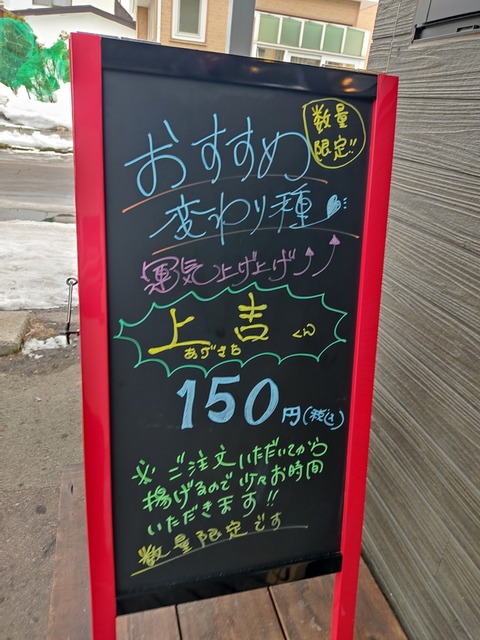 数量
限定!!
おすすめ
変わり種
運気上げ上げ
上吉くん
あげきち
150円(税込)
※ご注文いただいてから
揚げるので少々お時間
いただきます!!
数量限定です